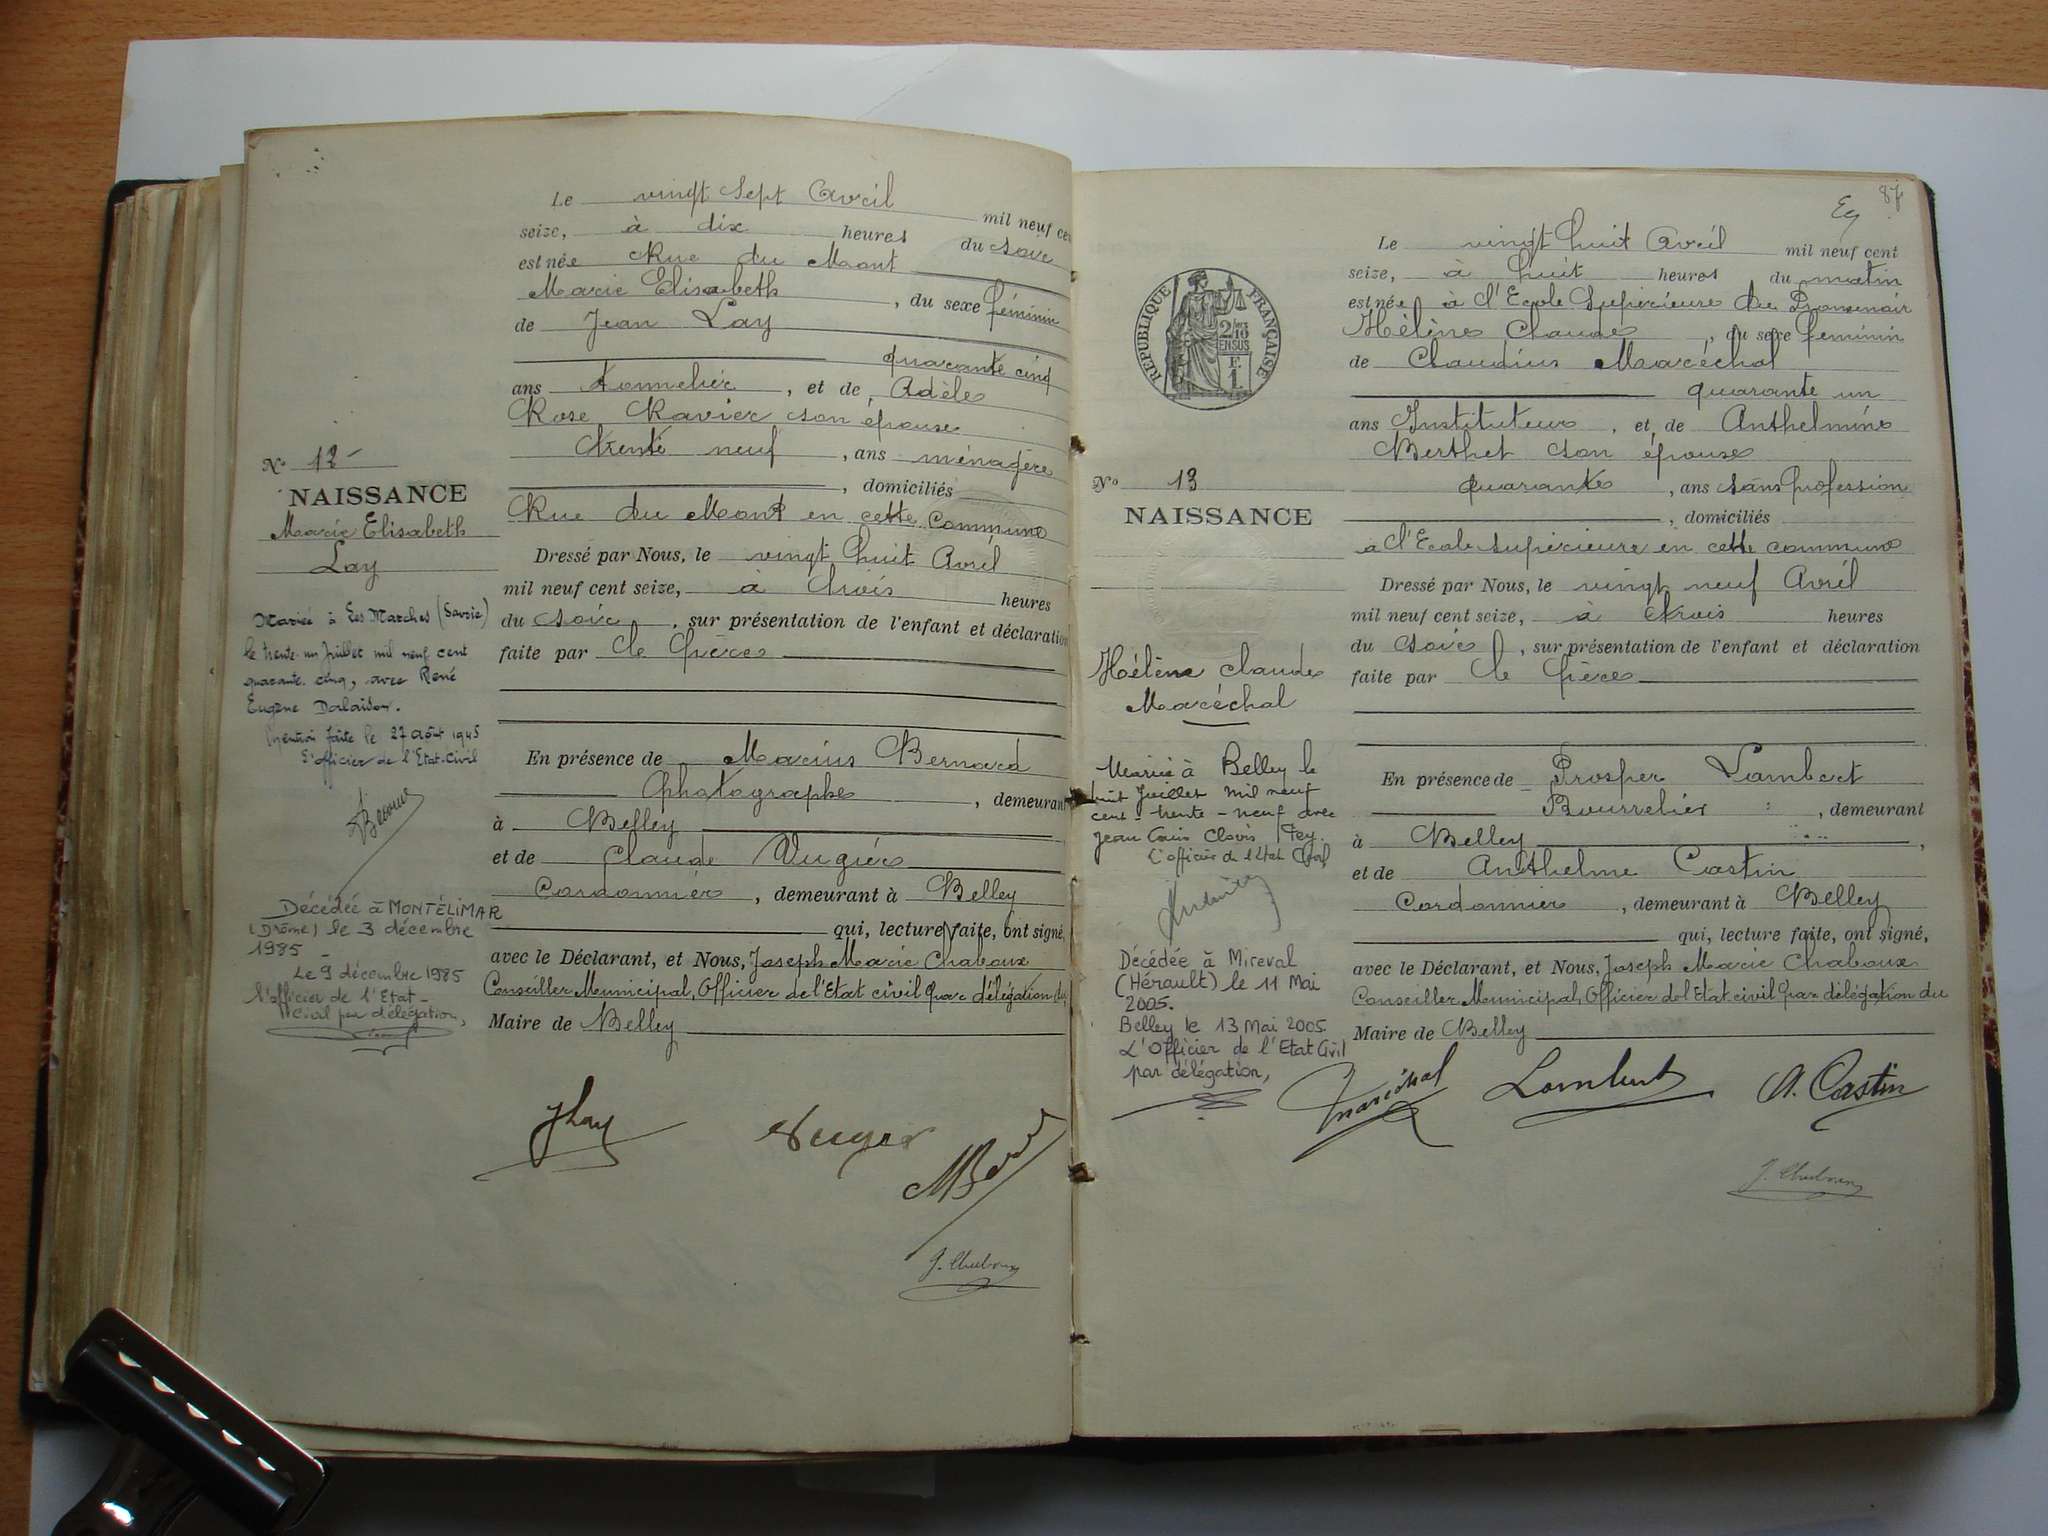 Le vingt sept Avril mil neuf cen
seize, à dix heures du soir
est née Rue du Mont
Marie Elisabeth, du sexe féminin
de Jean Lay
quarante cinq
ans Tonnelier, et de Adèle
Rose Ravier son épouse
trente neuf, ans ménagère
, domiciliés
Rue du Mont en cette commune
Dressé par Nous, le vingt huit Avril
mil neuf cent seize, à trois heures
du soir, sur présentation de l'enfant et déclaration
faite par le Père
En présence de Marius Bernard
Photographe, demeurant
à Belley
et de Claude Vugier
Cordonnier, demeurant à Belley
qui, lecture faite, ont signé,
avec le Déclarant, et Nous, Joseph Marie Chaboux
Conseiller Municipal, Officier de l'Etat civil par délégation du
Maire de Belley
JLay
Vugier
J. Chaboux
No 12
NAISSANCE
Marie Elisabeth
Lay
Mariée à Les Marches (Savoie)
le trente un Juillet mil neuf cent
quarante cinq, avec René
Eugène Dalaison.
Mention faite le 27 août 1945
L'officier de l'Etat-Civil
Décédée à MONTÉLIMAR
(Drôme) le 3 décembre
1985
Le 9 décembre 1985
l'officier de l'Etat-
Civil par délégation,
87
Le vingt huit Avril mil neuf cent
seize, à huit heures du matin
est née à l'Ecole Supérieure du Promenoir
Hélène Claude, du sexe féminin
de Claudius Maréchal
quarante un
ans Instituteur, et de Anthelmine
Berthet son épouse
quarante, ans sans profession
, domiciliés
à l'Ecole supérieure en cette commune
Dressé par Nous, le vingt neuf Avril
mil neuf cent seize, à trois heures
du soir, sur présentation de l'enfant et déclaration
faite par le Père
En présence de Prosper Lambert
Bourrelier, demeurant
à Belley,
et de Anthelme Castin
Cordonnier, demeurant à Belley
qui, lecture faite, ont signé,
avec le Déclarant, et Nous, Joseph Marie Chaboux
Conseiller Municipal, Officier de l'Etat civil par délégation du
Maire de Belley
Maréchal
Lambert
A. Castin
J. Chaboux
RÉPUBLIQUE FRANÇAISE
2/10
EN SUS
F.
1.
No 13
NAISSANCE
Hélène Claude
Maréchal
Mariée à Belley le
huit Juillet mil neuf
cent-trente-neuf avec
Jean Louis Clovis Fey.
L'officier de l'Etat Civil
Décédée à Mireval
(Hérault) le 11 Mai
2005.
Belley le 13 Mai 2005.
L'Officier de l'Etat Civil
par délégation,